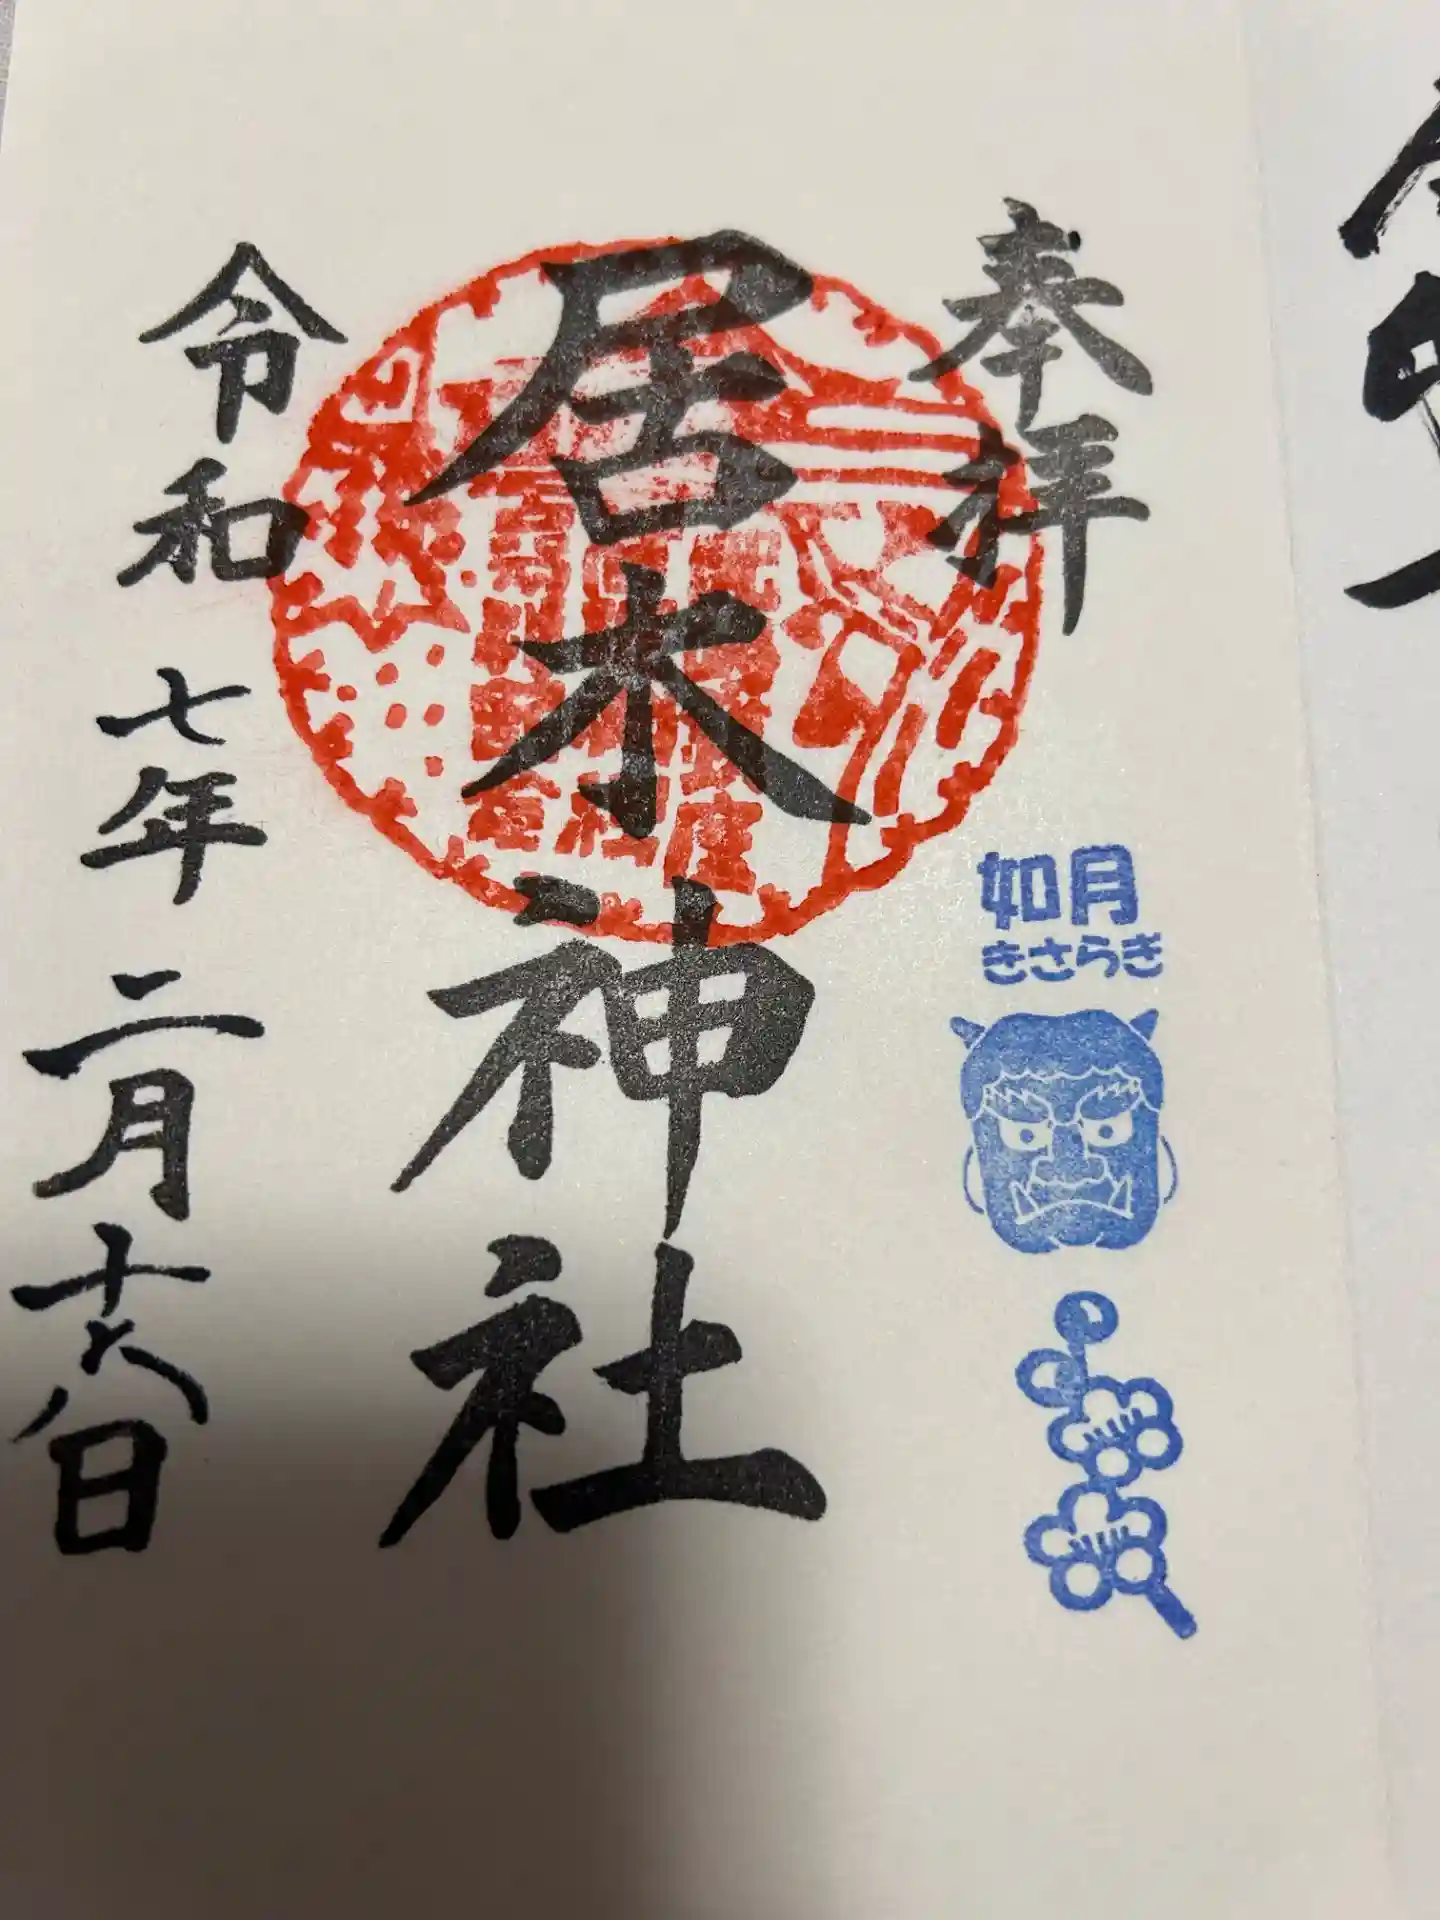 奉拝
如月
きさらぎ
居木神社
令和七年二月十八日